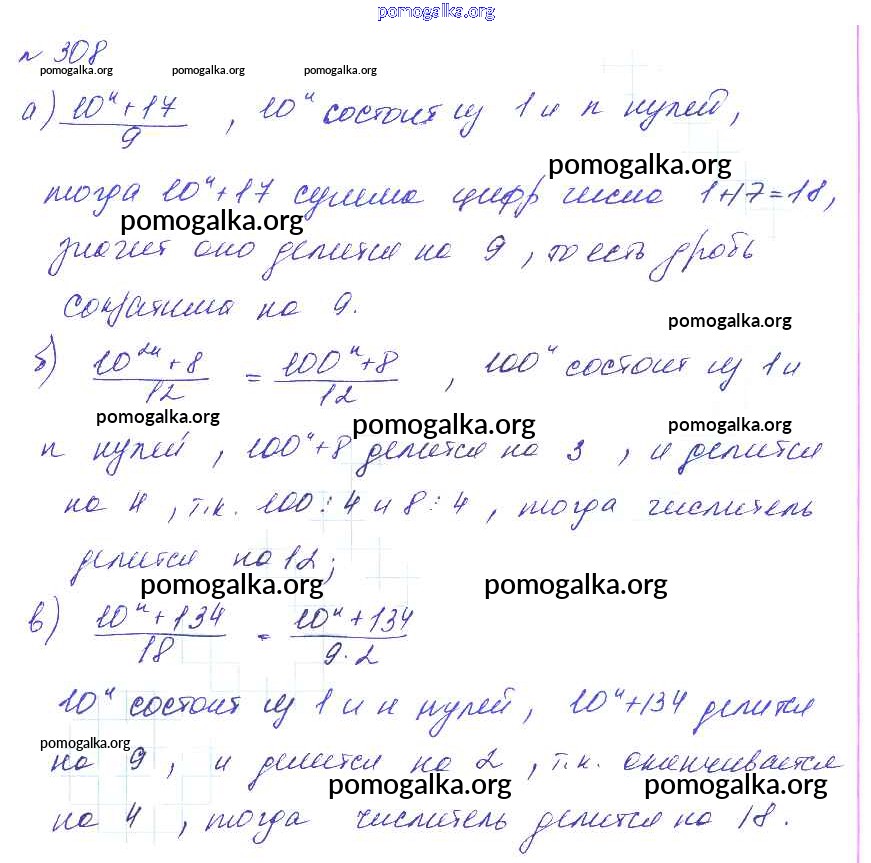 pomogalka.org
№ 308
pomogalka.org pomogalka.org pomogalka.org
а) (10ⁿ + 17)/9 , 10ⁿ состоит из 1 и n нулей,
pomogalka.org
тогда 10ⁿ + 17 сумма цифр числа 1+17=18,
pomogalka.org
значит оно делится на 9 , то есть дробь
сократима на 9.
pomogalka.org
б) (10²ⁿ + 8)/12 = (100ⁿ + 8)/12 , 100ⁿ состоит из 1 и
pomogalka.org pomogalka.org pomogalka.org
n нулей , 100ⁿ + 8 делится на 3 , и делится
на 4 , т.к. 100 : 4 и 8 : 4 , тогда числитель
делится на 12;
pomogalka.org pomogalka.org
в) (10ⁿ + 134)/18 = (10ⁿ + 134)/(9·2)
10ⁿ состоит из 1 и n нулей, 10ⁿ + 134 делится
pomogalka.org
на 9 , и делится на 2 , т.к. оканчивается
pomogalka.org pomogalka.org
на 4 , тогда числитель делится на 18.